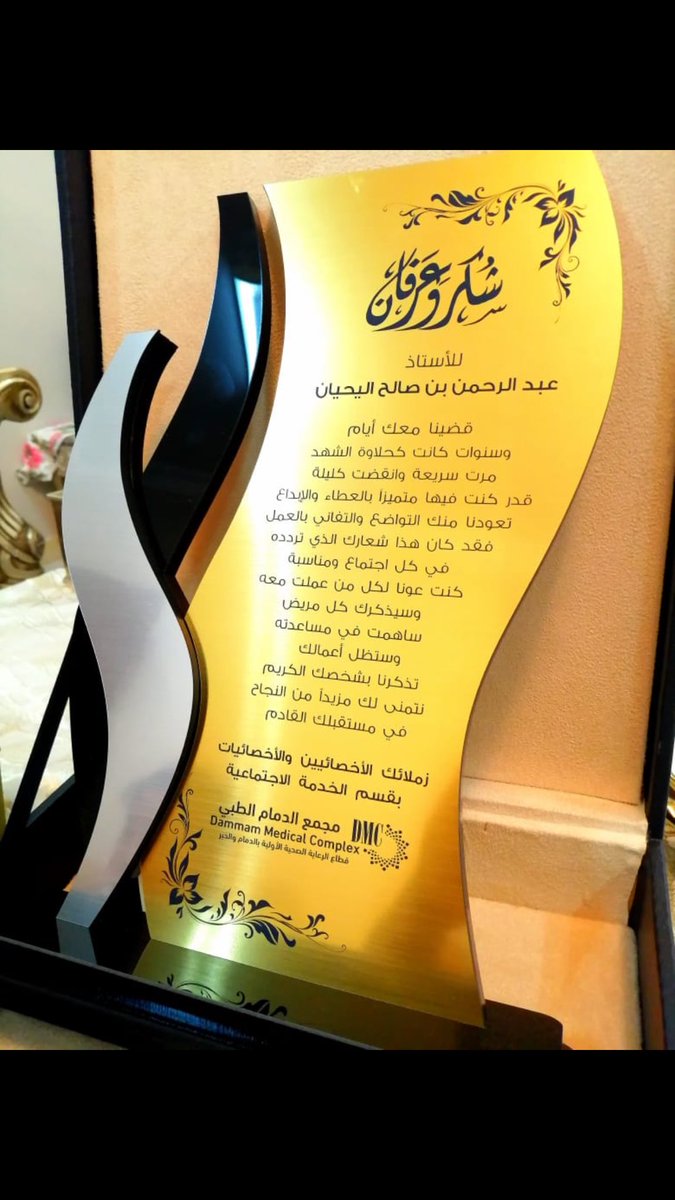 شُكر وَعَرفان
للأستاذ
عبد الرحمن بن صالح اليحيان
قضينا معك أيام
وسنوات كانت كحلاوة الشهد
مرت سريعة وانقضت كليلة
قدر كنت فيها متميزاً بالعطاء والإبداع
تعودنا منك التواضع والتفاني بالعمل
فقد كان هذا شعارك الذي تردده
في كل اجتماع ومناسبة
كنت عونا لكل من عملت معه
وسيذكرك كل مريض
ساهمت في مساعدته
وستظل أعمالك
تذكرنا بشخصك الكريم
نتمنى لك مزيداً من النجاح
في مستقبلك القادم
زملائك الأخصائيين والأخصائيات
بقسم الخدمة الاجتماعية
مجمع الدمام الطبي
DMC
Dammam Medical Complex
قطاع الرعاية الصحية الأولية بالدمام والخبر